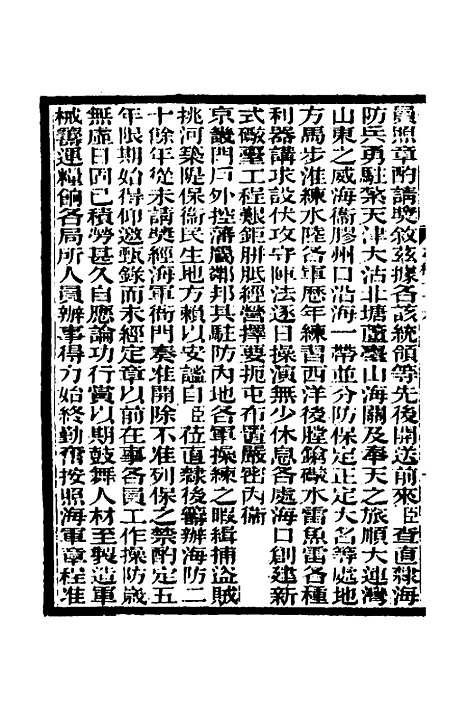 員照章酌請獎敘茲據各該統領等先後開送前來臣查直隸海
防兵勇駐紮天津大沽北塘蘆臺山海關及奉天之旅順大連灣
山東之威海衞膠州口沿海一帶並分防保定正定大名等處地
方馬步淮練水陸各軍歷年練習西洋後膛鎗礮水雷魚雷各種
利器講求設伏攻守陣法逐日操演無少休息各處海口創建新
式礮臺工程艱鉅胼胝經營擇要扼屯布置嚴密內衞
京畿門戶外控藩屬鄰邦其駐防內地各軍操練之暇緝捕盜賊
挑河築隄保衞民生地方賴以安謐自臣莅直隸後籌辦海防二
十餘年從未請獎經海軍衙門奏准開除不准列保之禁酌定五
年限期始得仰邀甄錄而未經定章以前在事各員工作操防歲
無虛日固已積勞甚久自應論功行賞以期鼓舞人材至製造軍
械籌運糧餉各局所人員辦事得力始終勤奮按照海軍章程准